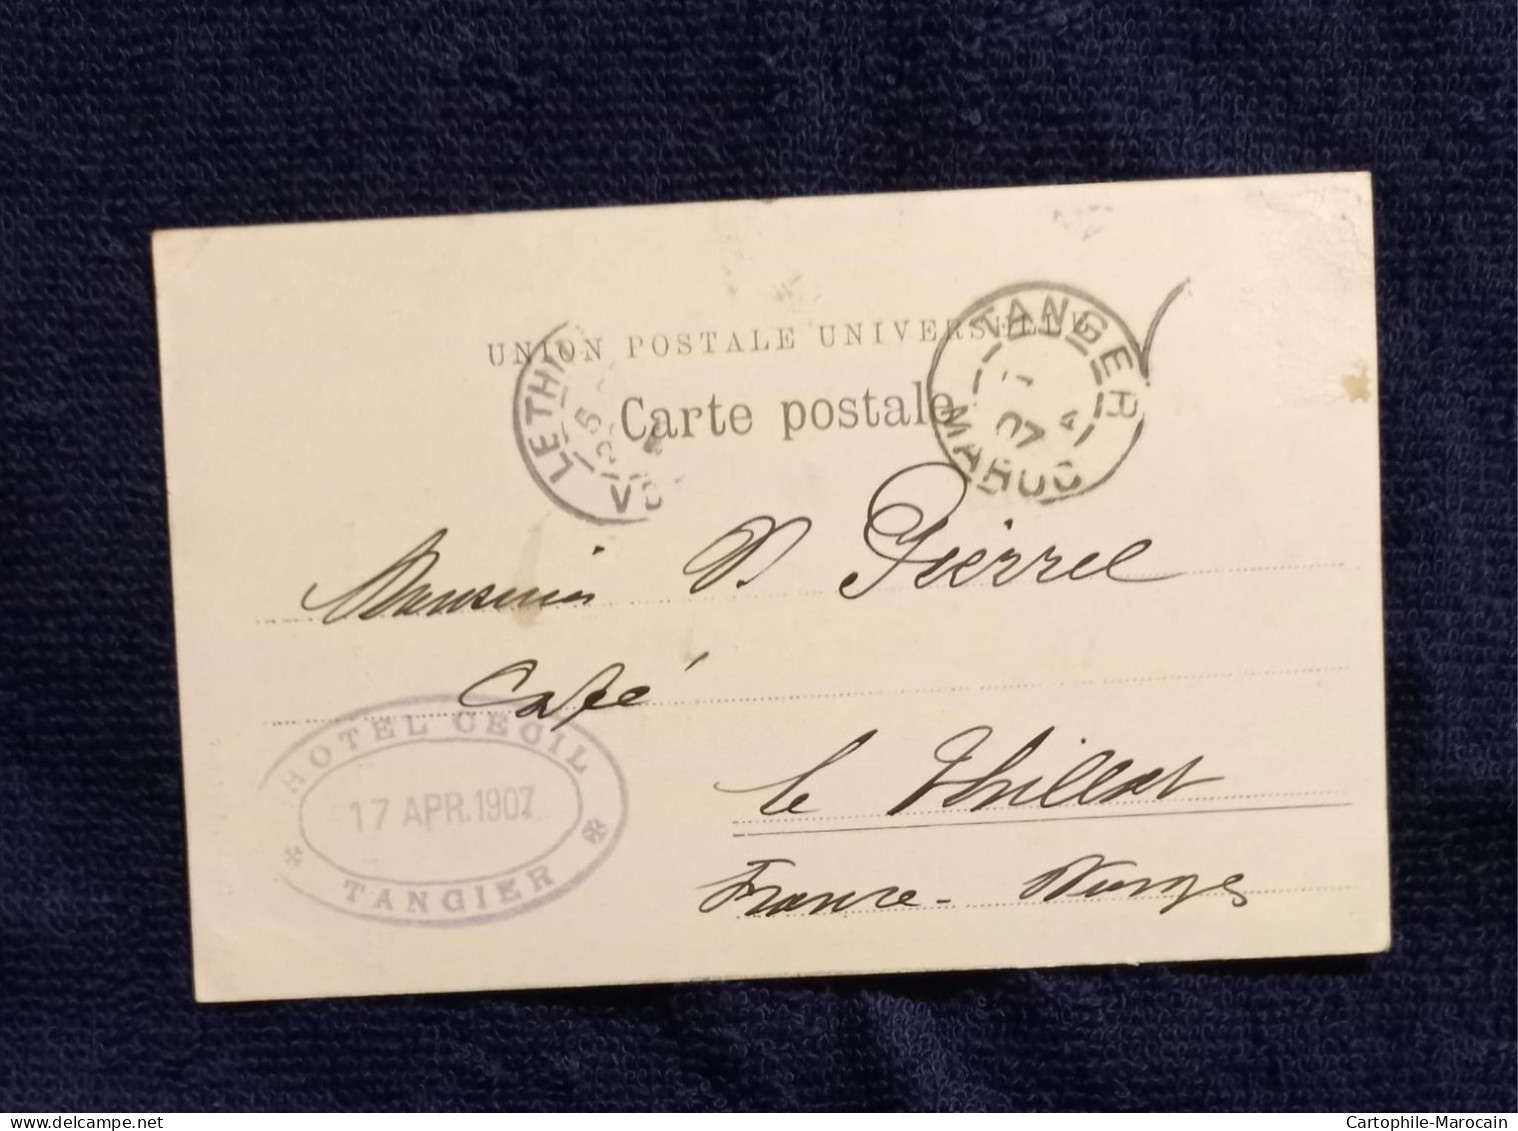 UNION POSTALE UNIVERSELLE
Carte postale
LETHI
VO
TANGER
07
MAROC
Monsieur P. Pierrel
Café
le Thillot
France - Vosges
HOTEL CECIL
17 APR. 1907
TANGIER
delcampe.net
Cartophile-Marocain